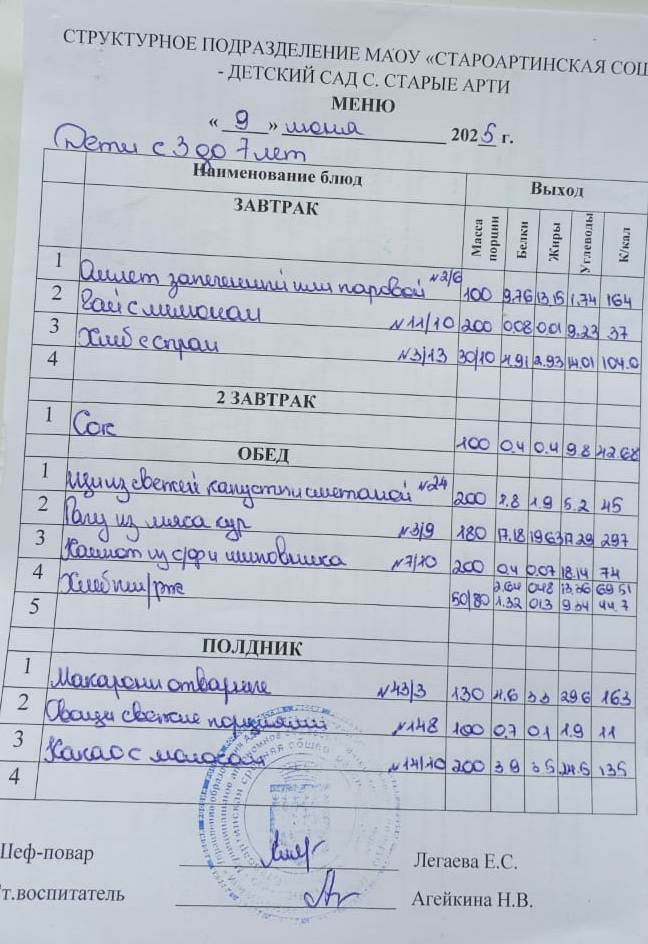 СТРУКТУРНОЕ ПОДРАЗДЕЛЕНИЕ МАОУ «СТАРОАРТИНСКАЯ СОШ
- ДЕТСКИЙ САД С. СТАРЫЕ АРТИ
МЕНЮ
« 9 » июня 2025 г.
Дети с 3 до 7 лет
Наименование блюд Выход
ЗАВТРАК Масса порции Белки Жиры Углеводы К/кал
1 Омлет запеченный или паровой №2/6 100 9.76 13,15 1.74 164
2 Чай с лимоном №11/10 200 0.08 0.01 9.23 37
3 Хлеб с сыром №3/13 30/10 4.91 2.93 14.01 104.0
4
2 ЗАВТРАК
1 Сок 100 0.4 0.4 9.8 42.68
ОБЕД
1 Щи из свежей капусты сметаной №24 200 1.9 5.2 45
2 Рагу из мяса кур №3/9 180 17.18 19.63 17.29 297
3 Компот из с/ф и шиповника №7/10 200 0.4 0.07 18.14 74
4 Хлеб пш/рж 2.64 0.48 13.36 69.51
5 50/80 1.32 0.13 9.34 44.7
ПОЛДНИК
1 Макароны отварные №43/3 130 4.6 3.3 29.6 163
2 Овощи свежие порциями №148 100 0.7 0.1 1.9 11
3 Какао с молоком №14/10 200 3.9 3.5 24.5 135
4
Шеф-повар Легаева Е.С.
Ст.воспитатель Агейкина Н.В.